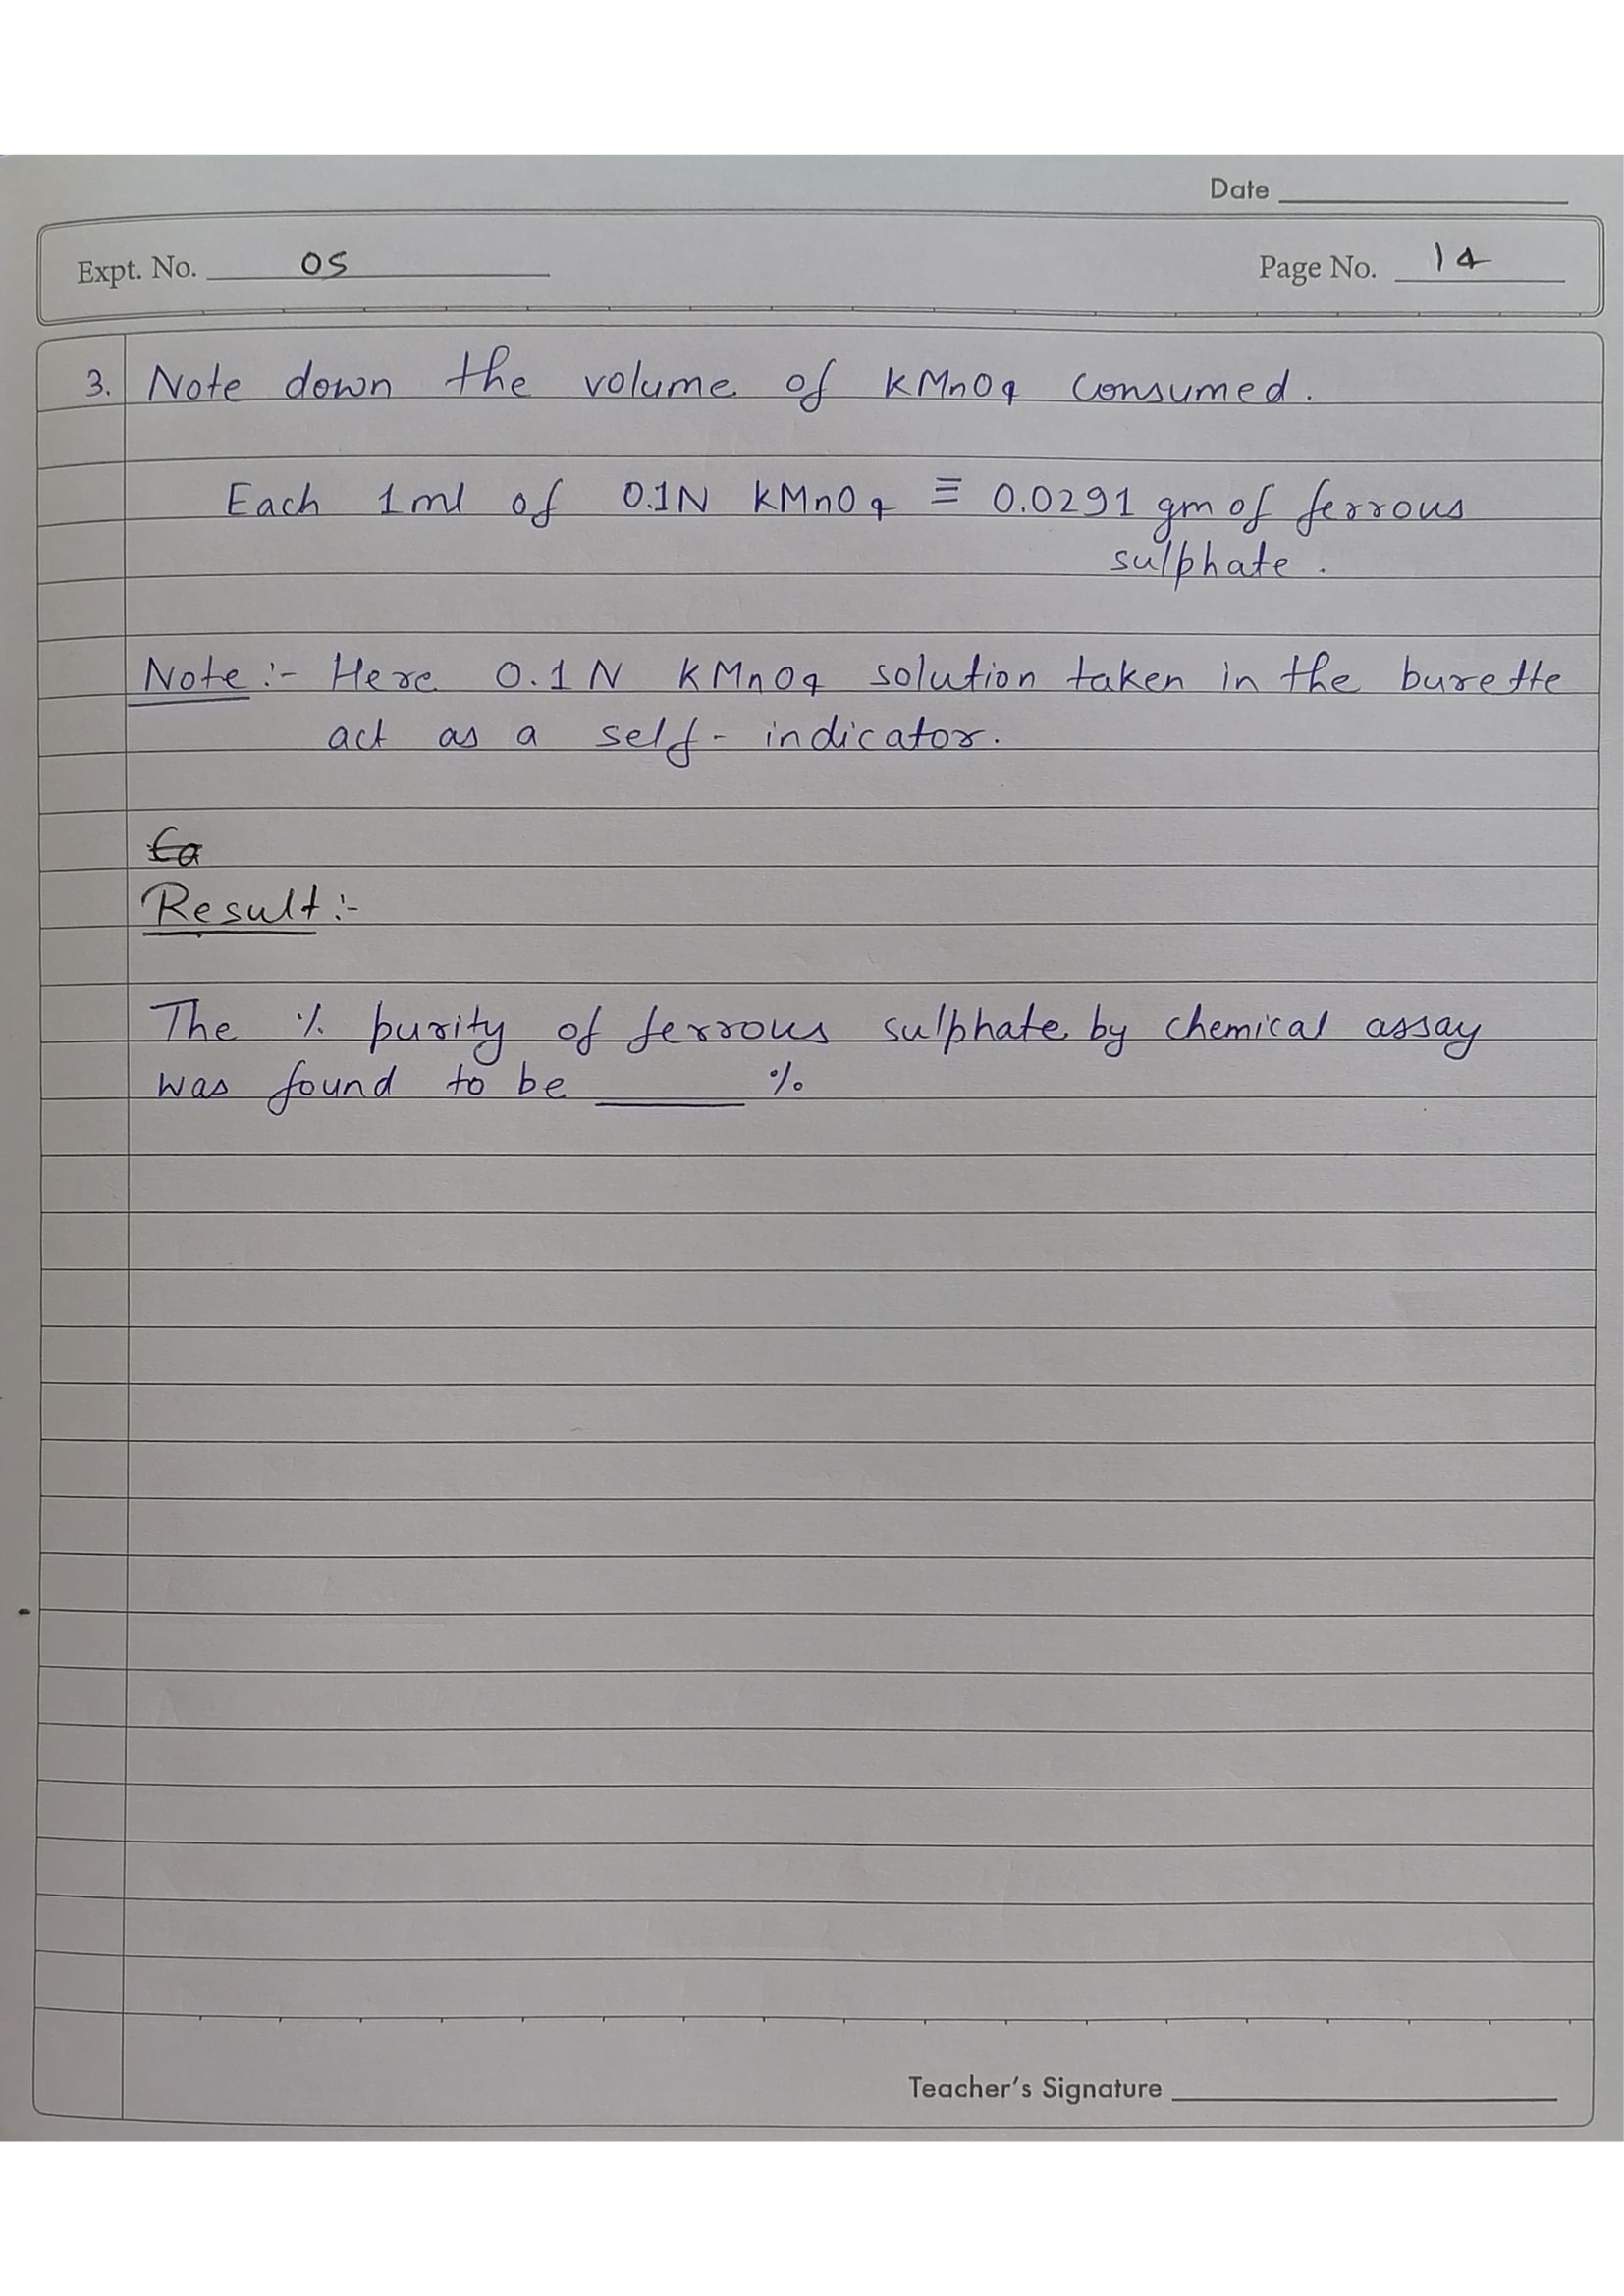 Date
Expt. No. 05
Page No. 14
3. Note down the volume of KMnO4 consumed.
Each 1ml of 0.1N KMnO4 ≡ 0.0291 gm of ferrous
sulphate.
Note :- Here 0.1N KMnO4 solution taken in the burette
act as a self-indicator.
Ca
Result :-
The % purity of ferrous sulphate by chemical assay
was found to be ______ %
Teacher's Signature